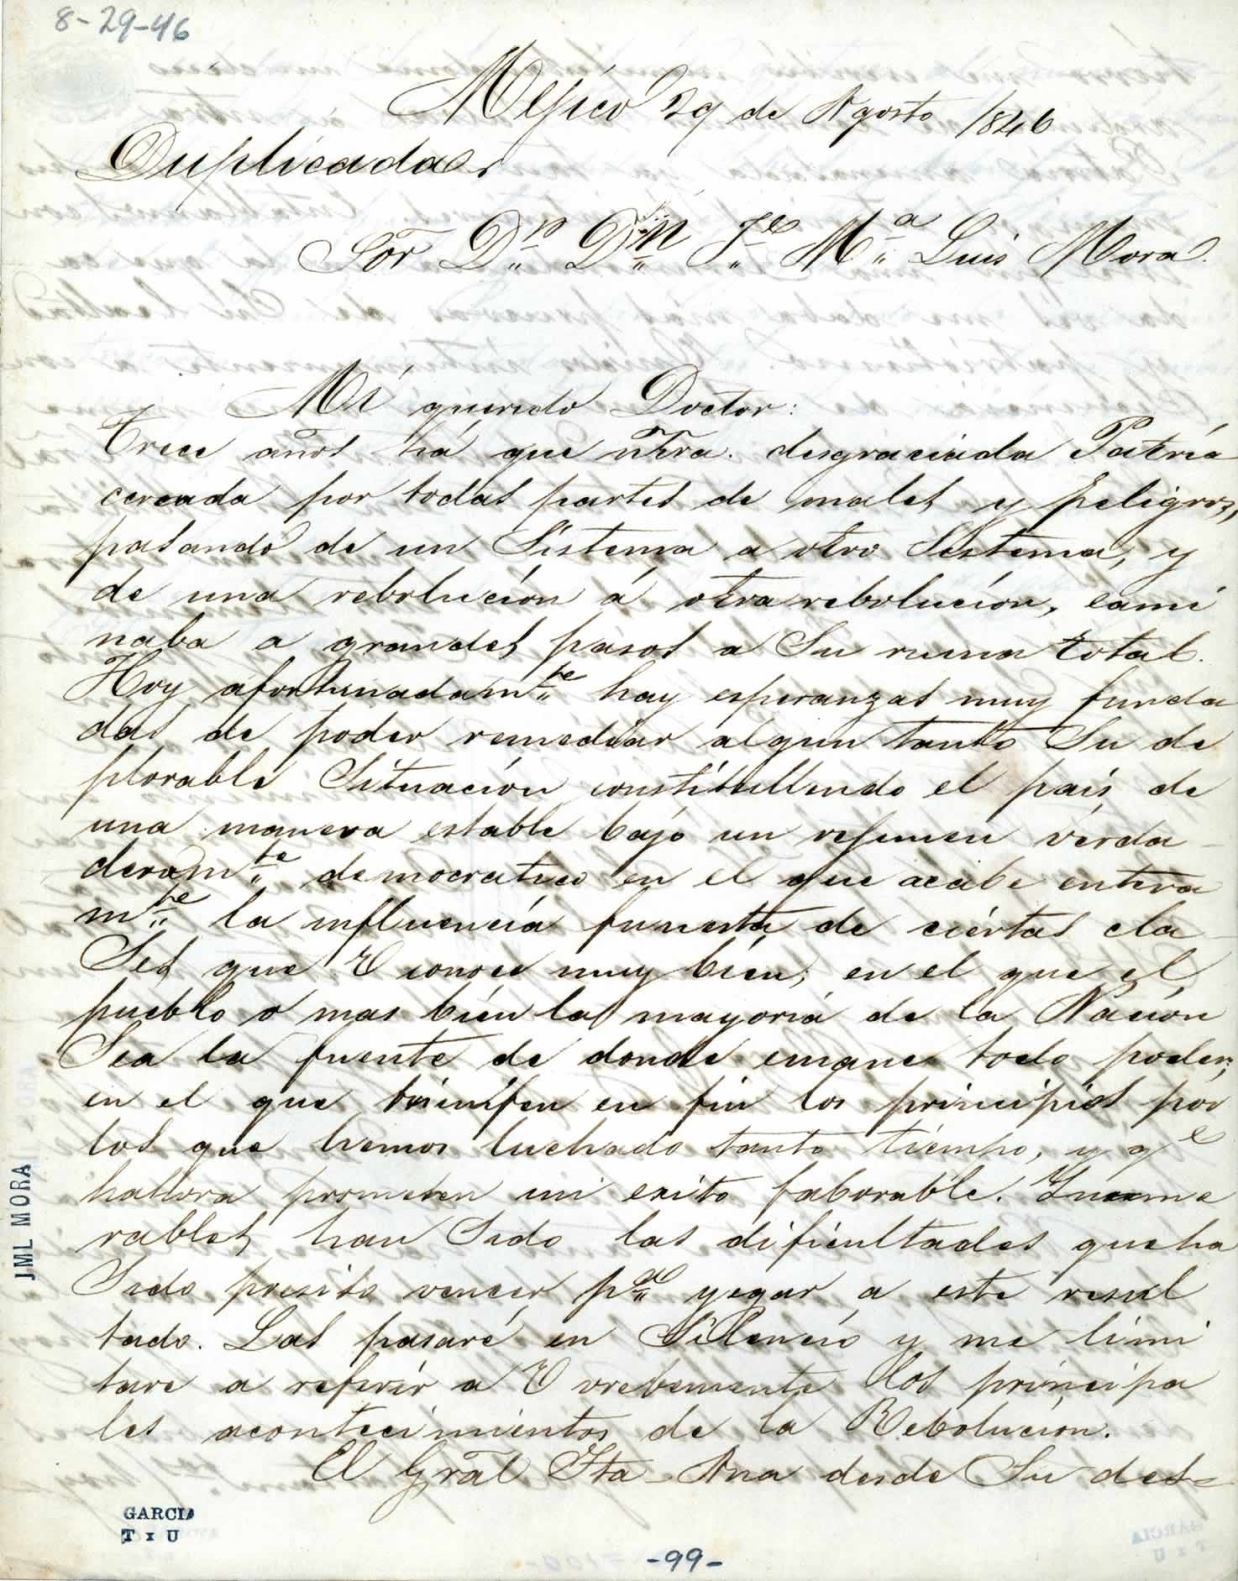 8-29-46
Mejico 29 de Agosto 1846
Duplicada.
Sõr Dn. Dn. Je. Ma. Luis Mora.
Mi querido Doctor:
Trece años há que ntra. desgraciada Patria
cercada por todas partes de males y peligros,
pasando de un Sistema a otro Sistema, y
de una rebolución á otra rebolución, cami
naba a grandes pasos a Su ruina total.
Hoy afortunadamte. hay esperanzas muy funda
das de poder remediar algun tanto Su de
plorable Situación constitullendo el país de
una manera estable bajo un rejimen verda
deramte. democratico en el que acabe entera
mte. la influencía funesta de ciértas cla
Ses que V conoce muy bien; en el que el
pueblo o mas bién la mayoriá de la Nación
Sea la fuente de donde emane todo poder;
en el que triunfen en fin los principios por
los que hemos luchado tanto tiempo, y qe
hahora prometen un exito faborable. Inume
rables han Sido las dificultades que ha
Sido presiso vencer pa. yegar a este resul
tado. Las pasaré en Silencio y me limi
tare a referir a V vrebemente los principa
les acontecimientos de la Rebolucion.
El Grãl Sta. Ana desde Su des=
JML MORA
GARCIA
T x U
-99-